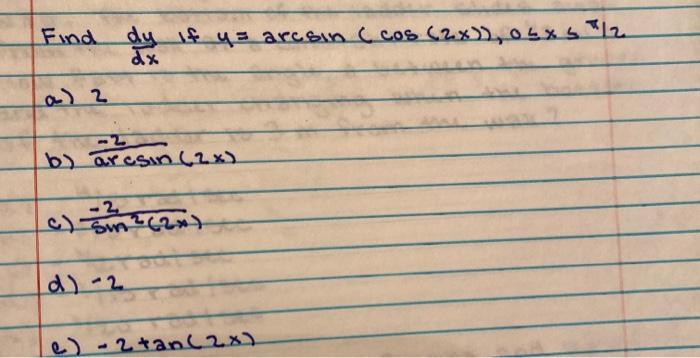 Find dy/dx if y = arcsin (cos (2x)), 0 ≤ x ≤ π/2
a) 2
b) -2/arcsin (2x)
c) -2/sin²(2x)
d) -2
e) -2tan(2x)